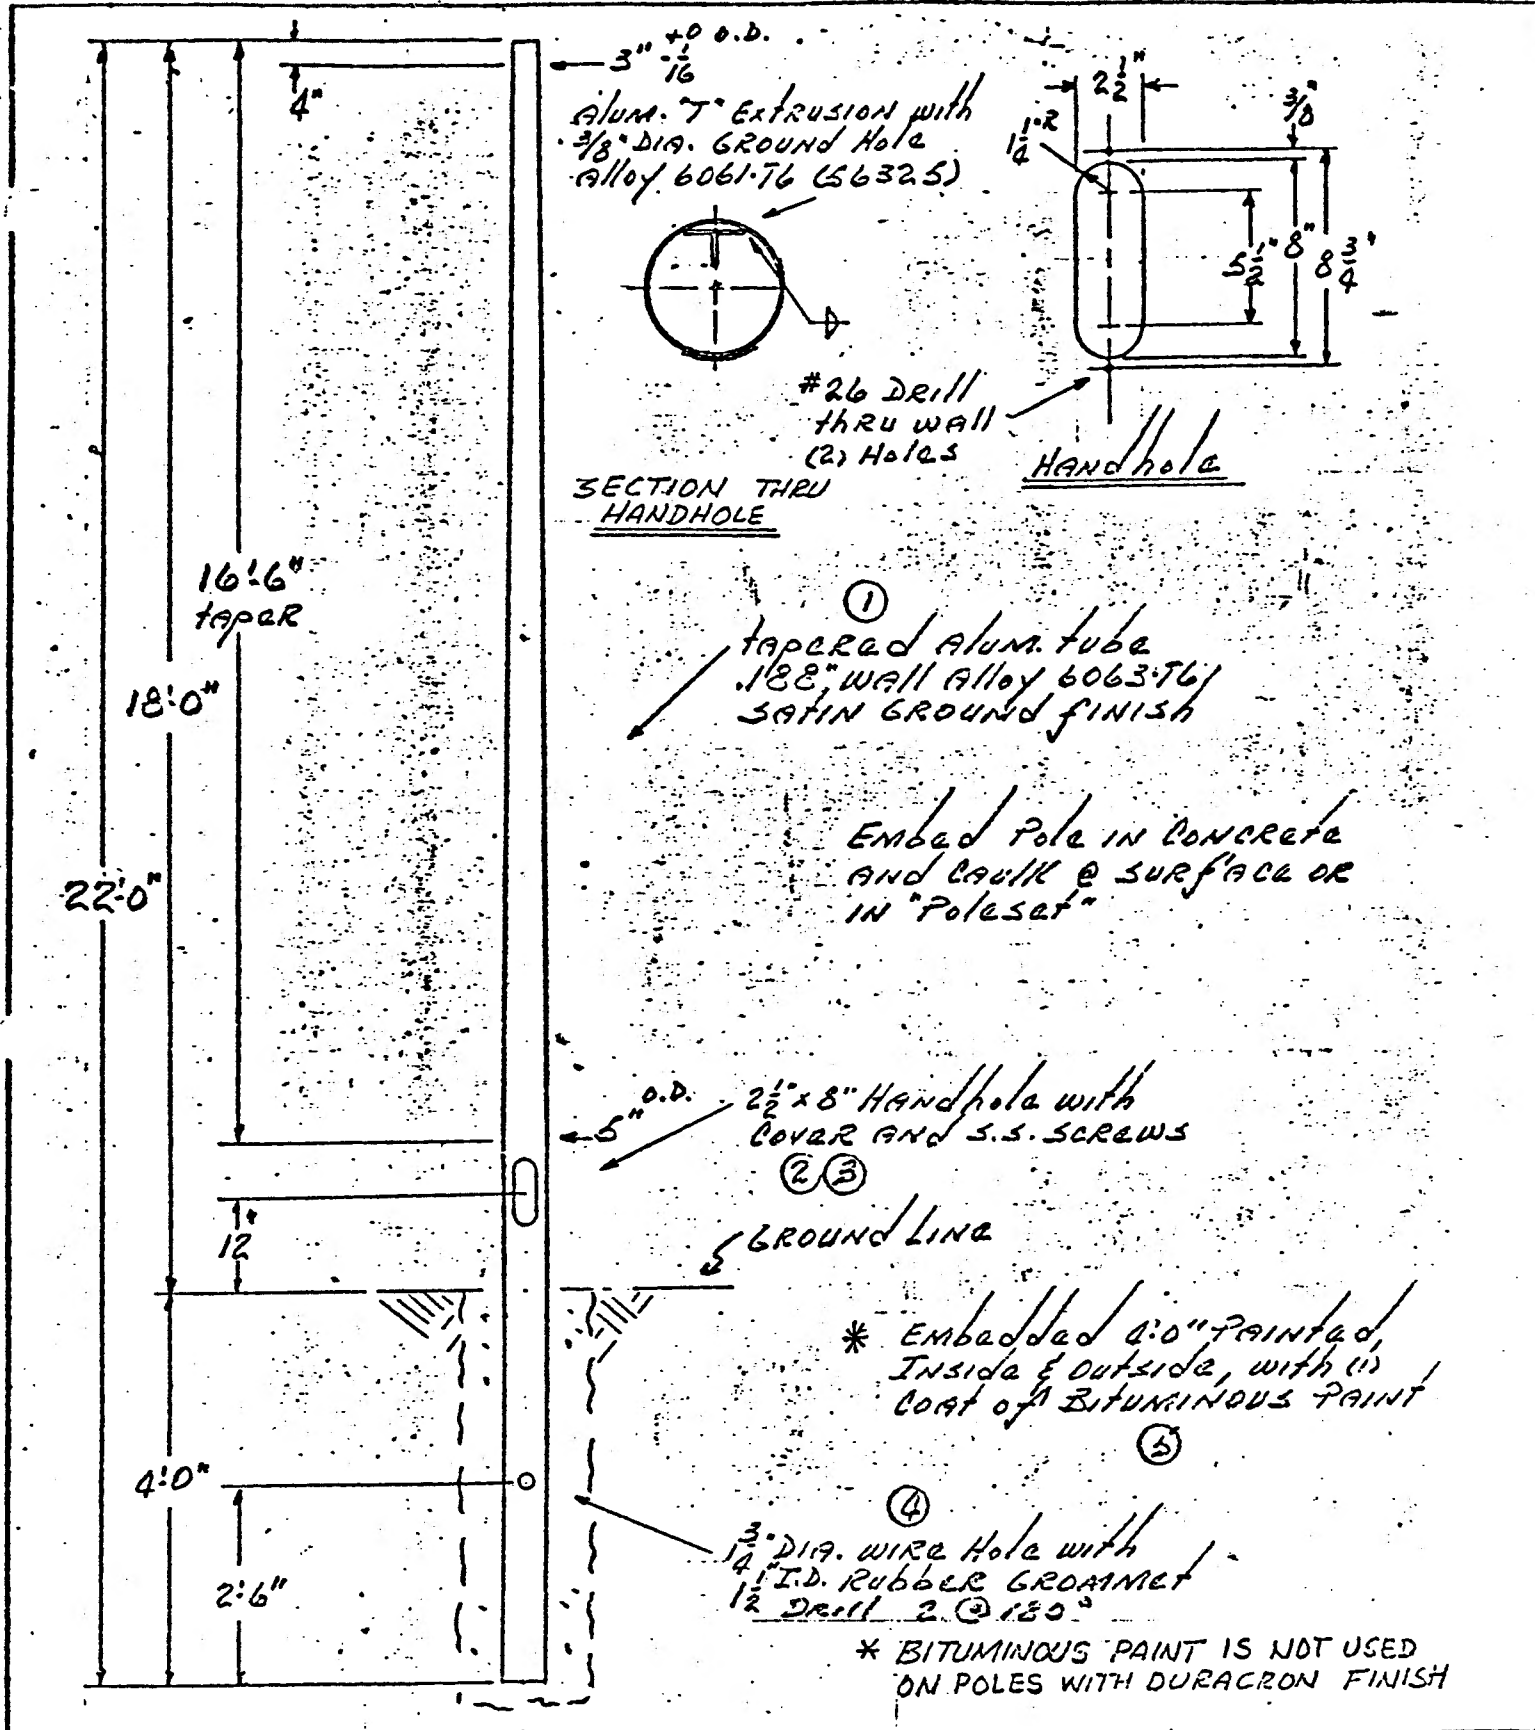 3" +0 -1/16 O.D.
4"
Alum. "T" Extrusion with
3/8" DIA. GROUND Hole
Alloy 6061-T6 (56325)
2 1/2"
1 1/4" R
3/8"
5 1/2"
8"
8 3/4"
#26 DRill
thRu wAll
(2) Holes
HANdhole
SECTION THRU
HANDHOLE
16'-6"
tApeR
18'-0"
22'-0"
1
tApeRed Alum. tube
.188" wAll Alloy 6063-T6
SAtIN GROUNd fINISh
Embed Pole IN CONCRete
ANd CAulK @ SURfACe OR
IN "Poleset"
5" O.D.
2 1/2" x 8" HANdhole with
COveR ANd S.S. SCRews
2 3
12"
GROUNd LINe
* Embedded 4'-0" PAINted,
INSide & OutSide, with (1)
COAt of BItumINOUS PAINt
5
4'-0"
4
1 3/4" DIA. wIRe Hole with
1 1/2" I.D. RubbeR GROmmet
DRill 2 @ 180°
2'-6"
* BITUMINOUS PAINT IS NOT USED
ON POLES WITH DURACRON FINISH